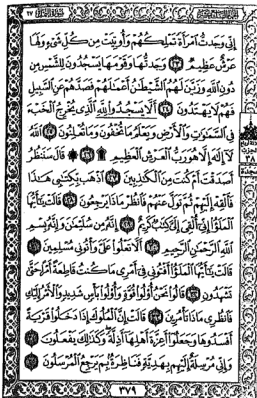 ٢٧
إِنِّى وَجَدتُّ ٱمْرَأَةً تَمْلِكُهُمْ وَأُوتِيَتْ مِن كُلِّ شَىْءٍ وَلَهَا
عَرْشٌ عَظِيمٌ ﴿٢٣﴾ وَجَدتُّهَا وَقَوْمَهَا يَسْجُدُونَ لِلشَّمْسِ مِن
دُونِ ٱللَّهِ وَزَيَّنَ لَهُمُ ٱلشَّيْطَٰنُ أَعْمَٰلَهُمْ فَصَدَّهُمْ عَنِ ٱلسَّبِيلِ
فَهُمْ لَا يَهْتَدُونَ ﴿٢٤﴾ أَلَّا يَسْجُدُوا۟ لِلَّهِ ٱلَّذِى يُخْرِجُ ٱلْخَبْءَ
فِى ٱلسَّمَٰوَٰتِ وَٱلْأَرْضِ وَيَعْلَمُ مَا تُخْفُونَ وَمَا تُعْلِنُونَ ﴿٢٥﴾ ٱللَّهُ
لَآ إِلَٰهَ إِلَّا هُوَ رَبُّ ٱلْعَرْشِ ٱلْعَظِيمِ ﴿٢٦﴾ قَالَ سَنَنظُرُ
أَصَدَقْتَ أَمْ كُنتَ مِنَ ٱلْكَٰذِبِينَ ﴿٢٧﴾ ٱذْهَب بِّكِتَٰبِى هَٰذَا
فَأَلْقِهْ إِلَيْهِمْ ثُمَّ تَوَلَّ عَنْهُمْ فَٱنظُرْ مَاذَا يَرْجِعُونَ ﴿٢٨﴾ قَالَتْ يَٰٓأَيُّهَا
ٱلْمَلَؤُا۟ إِنِّىٓ أُلْقِىَ إِلَىَّ كِتَٰبٌ كَرِيمٌ ﴿٢٩﴾ إِنَّهُۥ مِن سُلَيْمَٰنَ وَإِنَّهُۥ بِسْمِ
ٱللَّهِ ٱلرَّحْمَٰنِ ٱلرَّحِيمِ ﴿٣٠﴾ أَلَّا تَعْلُوا۟ عَلَىَّ وَأْتُونِى مُسْلِمِينَ ﴿٣١﴾
قَالَتْ يَٰٓأَيُّهَا ٱلْمَلَؤُا۟ أَفْتُونِى فِىٓ أَمْرِى مَا كُنتُ قَاطِعَةً أَمْرًا حَتَّىٰ
تَشْهَدُونِ ﴿٣٢﴾ قَالُوا۟ نَحْنُ أُو۟لُوا۟ قُوَّةٍ وَأُو۟لُوا۟ بَأْسٍ شَدِيدٍ وَٱلْأَمْرُ إِلَيْكِ
فَٱنظُرِى مَاذَا تَأْمُرِينَ ﴿٣٣﴾ قَالَتْ إِنَّ ٱلْمُلُوكَ إِذَا دَخَلُوا۟ قَرْيَةً
أَفْسَدُوهَا وَجَعَلُوٓا۟ أَعِزَّةَ أَهْلِهَآ أَذِلَّةً وَكَذَٰلِكَ يَفْعَلُونَ ﴿٣٤﴾
وَإِنِّى مُرْسِلَةٌ إِلَيْهِم بِهَدِيَّةٍ فَنَاظِرَةٌۢ بِمَ يَرْجِعُ ٱلْمُرْسَلُونَ ﴿٣٥﴾
٣٧٩